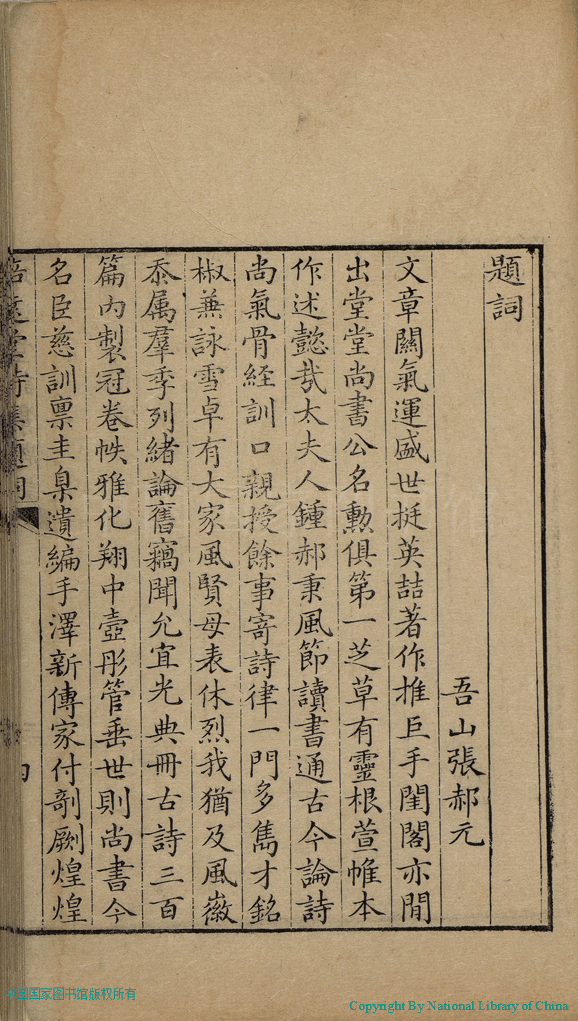 題詞
吾山張郝元
文章關氣運盛世挺英喆著作推巨手閨閣亦閒
出堂堂尚書公名勲俱第一芝草有靈根萱帷本
作述懿㦲太夫人鍾郝秉風節讀書通古今論詩
尚氣骨經訓口親授餘事寄詩律一門多雋才銘
椒兼詠雪卓有大家風賢母表休烈我猶及風徽
忝属羣季列緒論舊竊聞允宜光典冊古詩三百
篇內製冠卷帙雅化翔中壼彤管垂世則尚書今
名臣慈訓禀圭臬遺編手澤新傳家付剞劂煌煌
培遠堂詩集題詞
中国国家图书馆版权所有
Copyright By National Library of China